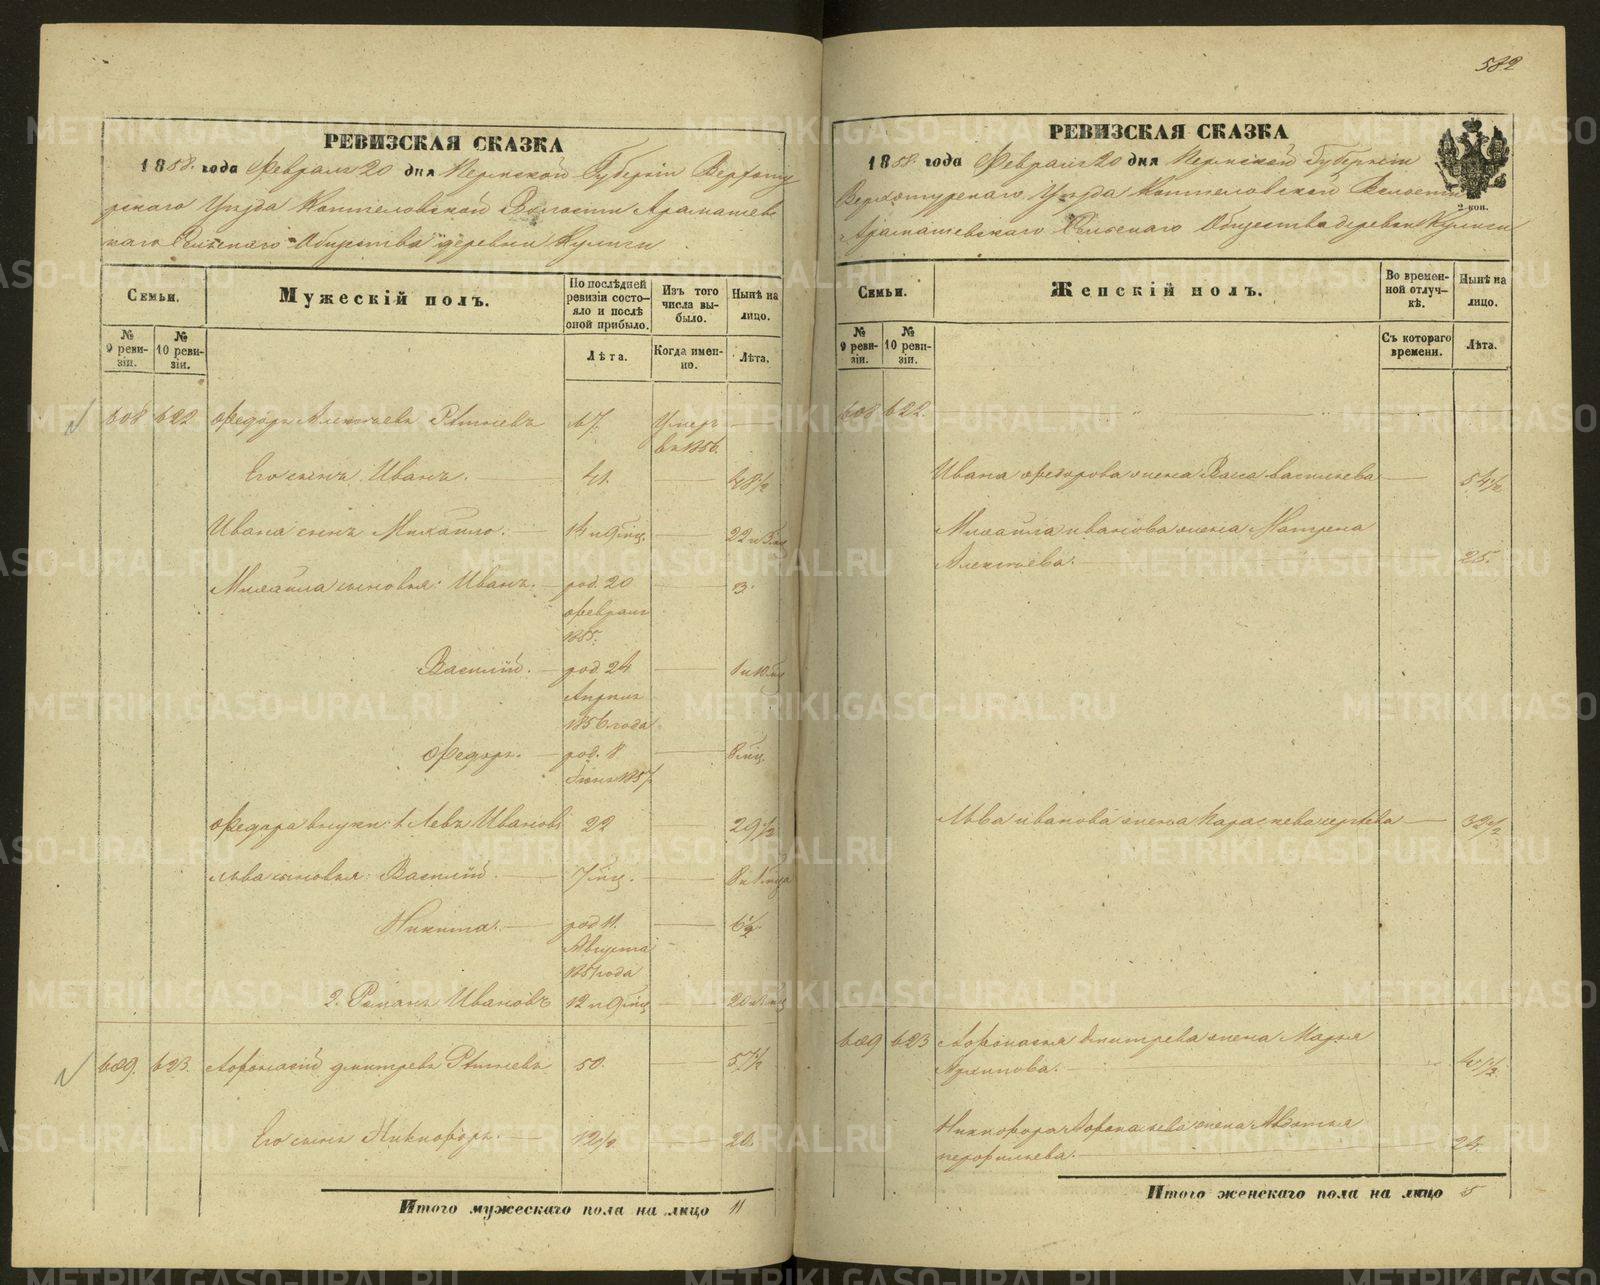 582
РЕВИЗСКАЯ СКАЗКА
1858. года Февраля 20 дня Пермской Губерніи Верхоту
рскаго Уѣзда Коптеловской Волости Арамашев
скаго Сельскаго Общества деревни Кулиги
Семьи.
Мужескій полъ.
По послѣдней ревизіи состояло и послѣ оной прибыло.
Изъ того числа выбыло.
Нынѣ на лицо.
№ 9 ревизіи.
№ 10 ревизіи.
Лѣта.
Когда именно.
Лѣта.
608 622 Федоръ Алексѣевъ 67. Умеръ
въ 1856.
Его сынъ Иванъ. 41. 48½
Ивана сынъ Михайло. 14 и 9 мѣц. 22 и 3 мѣц
Михайла сыновья: Иванъ. род. 20 3.
Февраля
1855.
Василій. род. 24 1 и 10 мѣц
Апрѣля
1856 года
Федоръ. род. 8 8 мѣц.
Іюня 1857.
Федора внуки: 1 Левъ Ивановъ 22 29½
Льва сыновья: Василій. 7 мѣц. 8 и 1 мѣца
Никита. род 11. 6½
Августа
1851 года
2. Романъ Ивановъ 12 и 9 мѣц
609. 623. Афонасій Дмитревъ 50. 57½
Его сынъ Никифоръ. 12½ 20.
Итого мужескаго пола на лицо 11
РЕВИЗСКАЯ СКАЗКА
1858. года Февраля 20 дня Пермской Губерніи
Верхотурскаго Уѣзда Коптеловской Волости
Арамашевскаго Сельскаго Общества деревни Кулиги
2 коп.
Семьи.
Женскій полъ.
Во временной отлучкѣ.
Нынѣ на лицо.
№ 9 ревизіи.
№ 10 ревизіи.
Съ котораго времени.
Лѣта.
608 622.
Ивана Федорова жена Васа Васильева 54½
Михайла Иванова жена Матрена
Алексѣева. 25.
Льва Иванова жена Параскева Сергѣева 32½
609 623 Афонасья Дмитрева жена Марья
Архипова.
Никифора Афонасьева жена Авдотья
Перфильева. 24.
Итого женскаго пола на лицо 5
METRIKI.GASO-URAL.RU